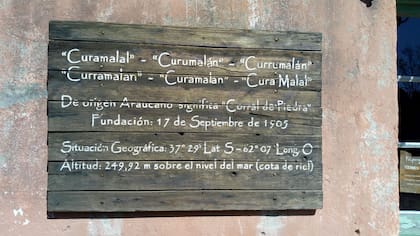 "Curamalal" - "Curumalán" - "Currumalán"
"Curramalan" - "Curamalan" - "Cura Malal"
De origen Araucano significa "Corral de Piedra"
Fundación: 17 de Septiembre de 1905
Situación Geográfica: 37° 29' Lat S - 62° 07' Long. O
Altitud: 249,92 m sobre el nivel del mar (cota de riel)